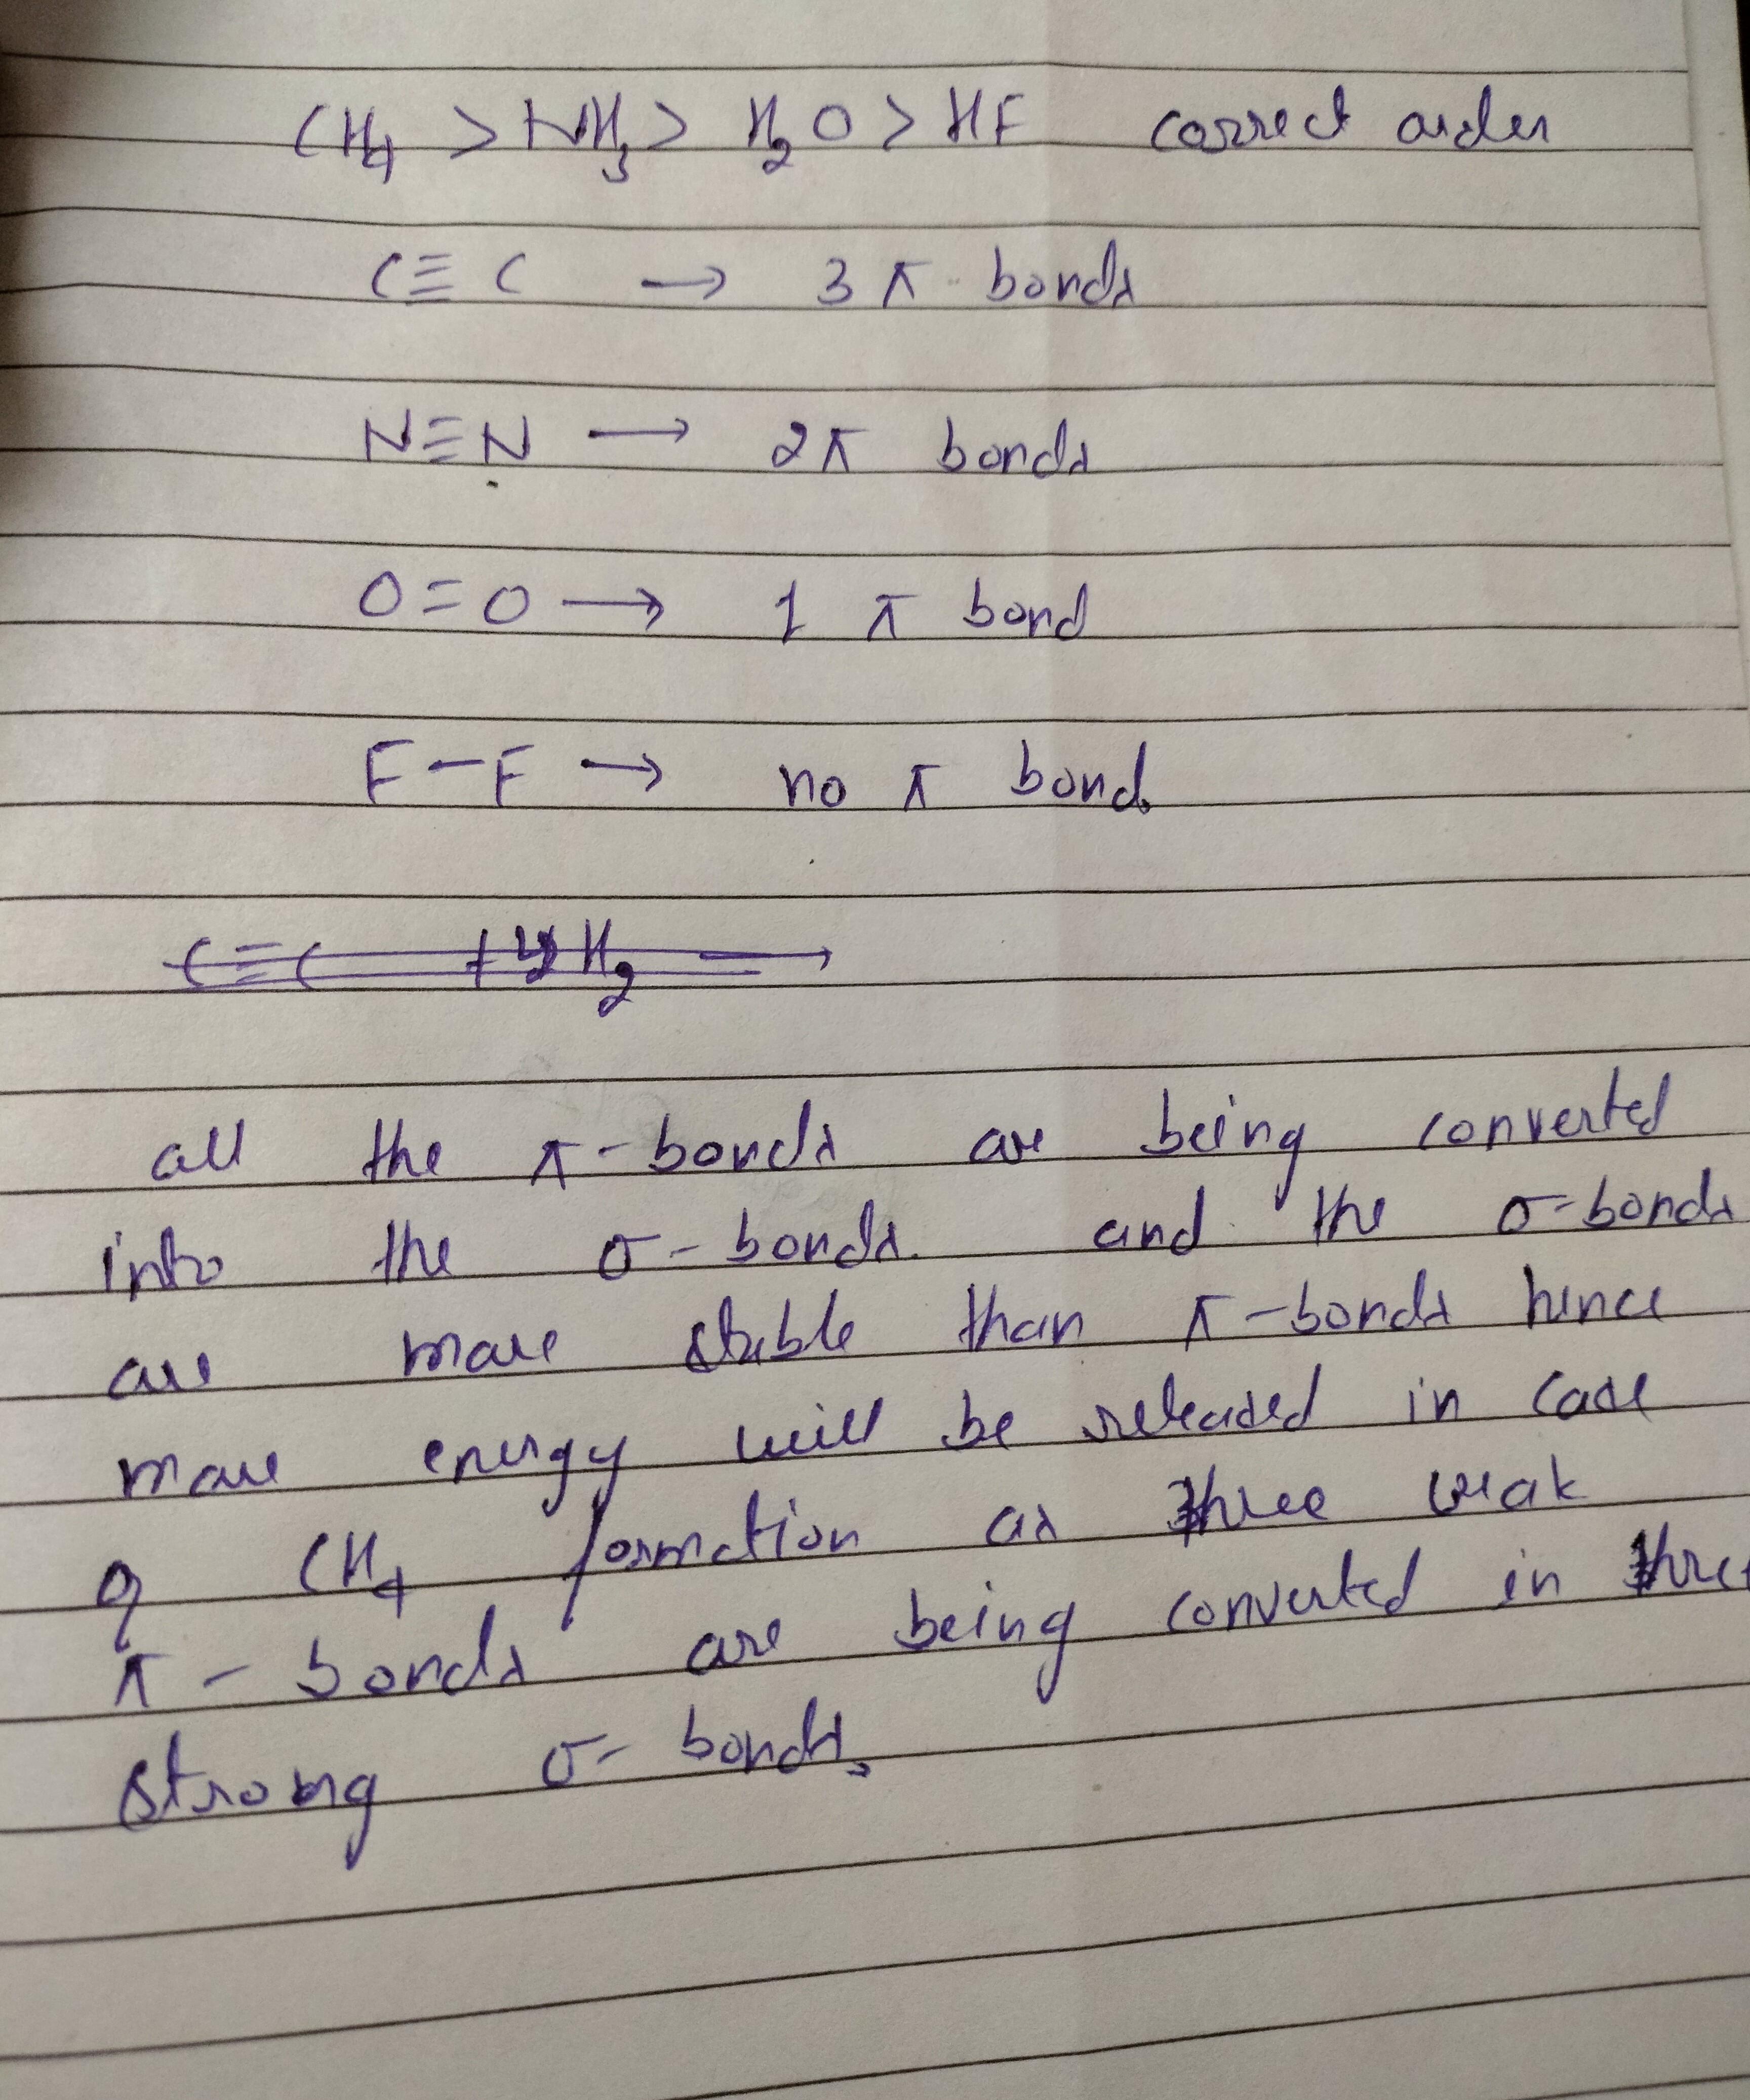 CH₄ > NH₃ > H₂O > HF correct order
C≡C → 3 π bonds
N≡N → 2π bonds
O=O → 1 π bond
F-F → no π bond.
C≡C + H₂ →
all the π-bonds are being converted
into the σ-bonds. and the σ-bonds
are more stable than π-bonds hence
more energy will be released in case
of CH₄ formation as three weak
π-bonds are being converted in three
strong σ-bonds.